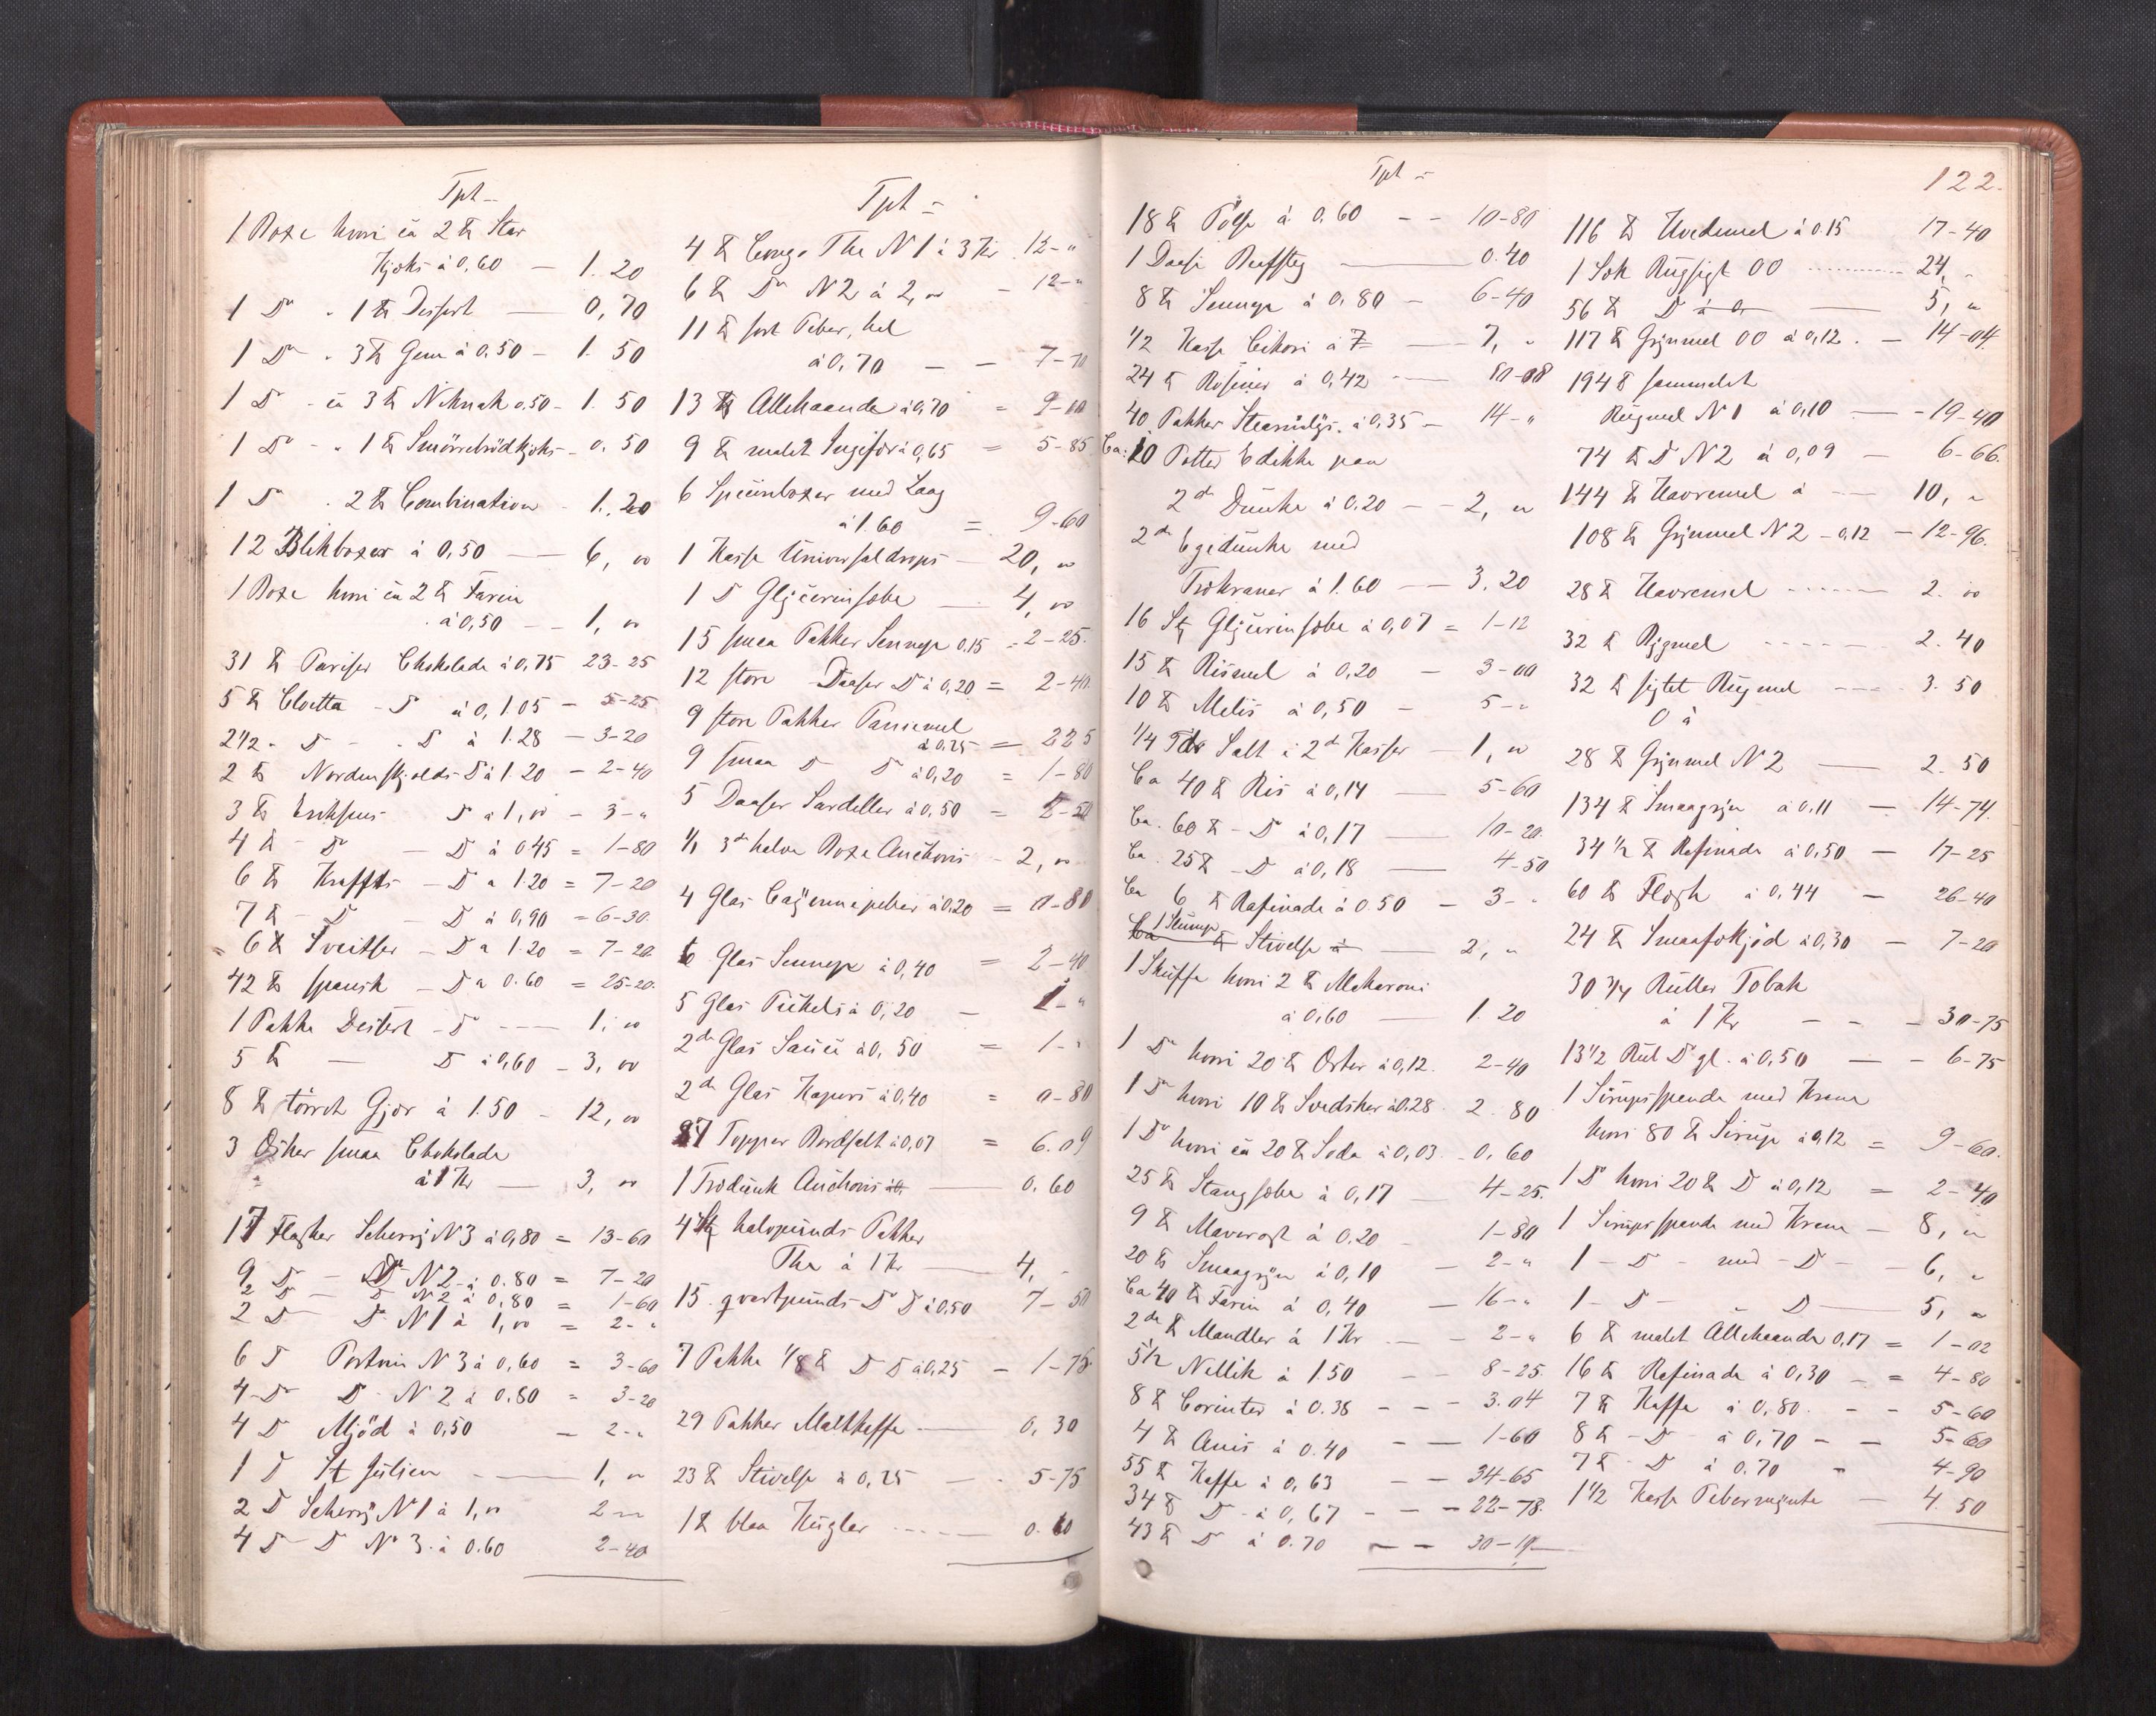 Tpt
1 Boxe hvori ca 2 ℔ Star
Kjeks à 0,60 — 1. 20
1 Do . 1 ℔ Dessert — 0, 70
1 Do . 3 ℔ Gem à 0.50 - 1. 50
1 Do - ca 3 ℔ Niknak 0,50 - 1. 50
1 Do - . 1 ℔ Smörrebrödkjeks - 0. 50
1 Do . 2 ℔ Combination - 1. 20
12 Blikboxer à 0,50 — 6, "
1 Boxe hvori ca 2 ℔ Farin
à 0,50 - 1, "
31 ℔ Pariser Chokolade à 0,75 23-25
5 ℔ Cloetta - D à 0, 1.05 - 5-25
2 1/2 " D - . D à 1.28 - 3-20
2 ℔ Nordenskjolds D à 1.20 - 2-40
3 ℔ Eriksens D à 1, " - 3-"
4 ℔ - D - D à 0.45 = 1-80
6 ℔ Kraffts - D a 1.20 = 7-20
7 ℔ - D - D à 0,90 = 6-30
6 ℔ Sveitser - D a 1.20 = 7-20
42 ℔ spansk - D a 0.60 = 25-20
1 Pakke Desert - D --- 1, "
5 ℔ — D à 0,60 - 3, "
8 ℔ törret Gjær à 1.50 - 12, "
3 Æsker smaa Chokolade
à 1 Kr — 3, "
17 Flasker Scherry N 3 à 0,80 = 13-60
9 D - D N 2 à 0.80 = 7-20
2 D - D N 2 à 0,80 = 1-60
2 D D N 1 à 1, " = 2-"
6 D Portvin N 3 à 0,60 = 3-60
4 Do D N 2 à 0.80 = 3-20
4 D Mjöd à 0,50 - 2-"
1 D St Julien — 1, "
2 D Scherry N 1 à 1, " 2-"
4 D D No 3 à 0.60 2-40
Tpt
4 ℔ Congo The N 1 à 3 Kr 12-"
6 ℔ Do N 2 à 2, " - 12-"
11 ℔ sort Peber, hel
à 0,70 - - 7-70
13 ℔ Allehaande à 0,70 = 9-10
9 ℔ malet Ingefær à 0,65 = 5-85
6 Spiunboxer med Laag
à 1.60 = 9-60
1 Kasse Universaldrops - 20, "
1 D Glycerinsæbe — 4, "
15 smaa Pakker Sennep 0,15 = 2-25
12 store Daaser D à 0,20 = 2-40
9 store Pakker Paniermel
à 0,25 = 2 25
9 smaa D D à 0,20 = 1-80
5 Daaser Sardeller à 0,50 = 2-50
3de halve Boxe Anchovis - 2, "
4 Glas Cayennepeber à 0,20 = 0-80
6 Glas Sennep à 0,40 = 2-40
5 Glas Pickels à 0,20 - 1-"
2de Glas Sauce à 0, 50 = 1-"
2de Glas Kapers à 0,40 = 0-80
87 Topper Bordsalt à 0,07 = 6.09
1 Trædunk Anchovis — 0. 60
4 Stk halvpunds Pakker
The à 1 Kr — 4, -
15 qvartpunds D D à 0,50 7-50
7 Pakke 1/8 ℔ D D à 0,25 - 1-75
29 Pakker Maltkaffe — 0, 30
23 ℔ Stivelse à 0,25 — 5-75
1 ℔ blaa Kugler — 0.
Tpt
18 ℔ Pölse à 0.60 - - 10-80
1 Daase Beefsteg — 0.40
8 ℔ Sennep à 0.80 - 6-40
1/2 Kasse Cikori à 7 — 7, "
24 ℔ Rosiner à 0,42 — 10-08
40 Pakker Stearinlys. à 0,35 - 14-"
Ca: 10 Potter Edikke paa
2de Dunke à 0.20 - - 2, "
2de Egedunke med
Trækraner à 1.60 — 3. 20
16 Stk Glycerinsæbe à 0,07 = 1-12
15 ℔ Rismel à 0,20 - 3-00
10 ℔ Melis à 0,50 - 5-"
1/4 Tde Salt i 2de Kasser - 1, "
Ca 40 ℔ Ris à 0,14 — 5-60
Ca. 60 ℔ - D à 0,17 — 10-20
Ca. 25 ℔ - D à 0,18 — 4-50
Ca 6 ℔ Rafinade à 0.50 - 3-"
1 Slump
Ca ℔ Stivelse à — 2, "
1 Skuffe hvori 2 ℔ Makaroni
à 0,60 — 1. 20
1 Do hvori 20 ℔ Erter à 0,12. 2-40
1 Do hvori 10 ℔ Svedsker à 0.28. 2. 80
1 Do hvori ca 20 ℔ Soda à 0,03 - 0. 60
25 ℔ Stangsæbe à 0,17 — 4-25
9 ℔ Maverost à 0.20 - 1-80
20 ℔ Smaagryn à 0,10 - 2-"
Ca 40 ℔ Farin à 0,40 - 16-"
2de ℔ Mandler à 1 Kr - - 2-"
5 1/2 Nellik à 1.50 - - 8-25
8 ℔ Corinter à 0.38 - - - 3.04
4 ℔ Anis à 0.40 - - 1-60
55 ℔ Kaffe à 0,63 - - 34-65
34 ℔ D à 0,67 - - - 22-78
43 ℔ D à 0.70 - - 30-10
122.
116 ℔ Hvedemel à 0.15 17-40
1 Sæk Rugsigt 00 — 24, -
56 ℔ D à 0, — 5, "
117 ℔ Grynmel 00 à 0,12. - 14-04
194 ℔ sammalet
Rugmel N 1 à 0,10 — 19-40
74 ℔ D N 2 à 0,09 - 6-66.
144 ℔ Havremel à — 10, "
108 ℔ Grynmel N 2 - 0,12 - 12-96.
28 ℔ Havremel — 2. "
32 ℔ Bygmel — 2. 40
32 ℔ sigtet Rugmel — 3. 50
0 à
28 ℔ Grynmel N 2 — 2. 50
134 ℔ Smaagryn à 0.11 - 14-74.
34 1/2 ℔ Rafinade à 0,50 - 17-25
60 ℔ Flesk à 0,44 - 26-40
24 ℔ Smaafekjöd à 0,30 - 7-20
30 3/4 Ruller Tobak
à 1 Kr - - - 30-75
13 1/2 Rul D gl. à 0,50 - - 6-75
1 Sirupsspande med Krane
hvori 80 ℔ Sirup à 0,12 = 9-60.
1 Do hvori 20 ℔ D à 0,12 = 2-40
1 Sirupsspande med Krane - 8, "
1 - D - med - D - - 6, "
1 - D - " D — 5, "
6 ℔ malet Allehaande 0,17 = 1-02
16 ℔ Rafinade à 0,30 - = 4-80
7 ℔ Kaffe à 0,80. - - 5-60
8 ℔ - D - à 0,70 - - 5-60
7 ℔ - D à 0.70 - 4-90
1 1/2 Kasse Pebermynte - 4. 50